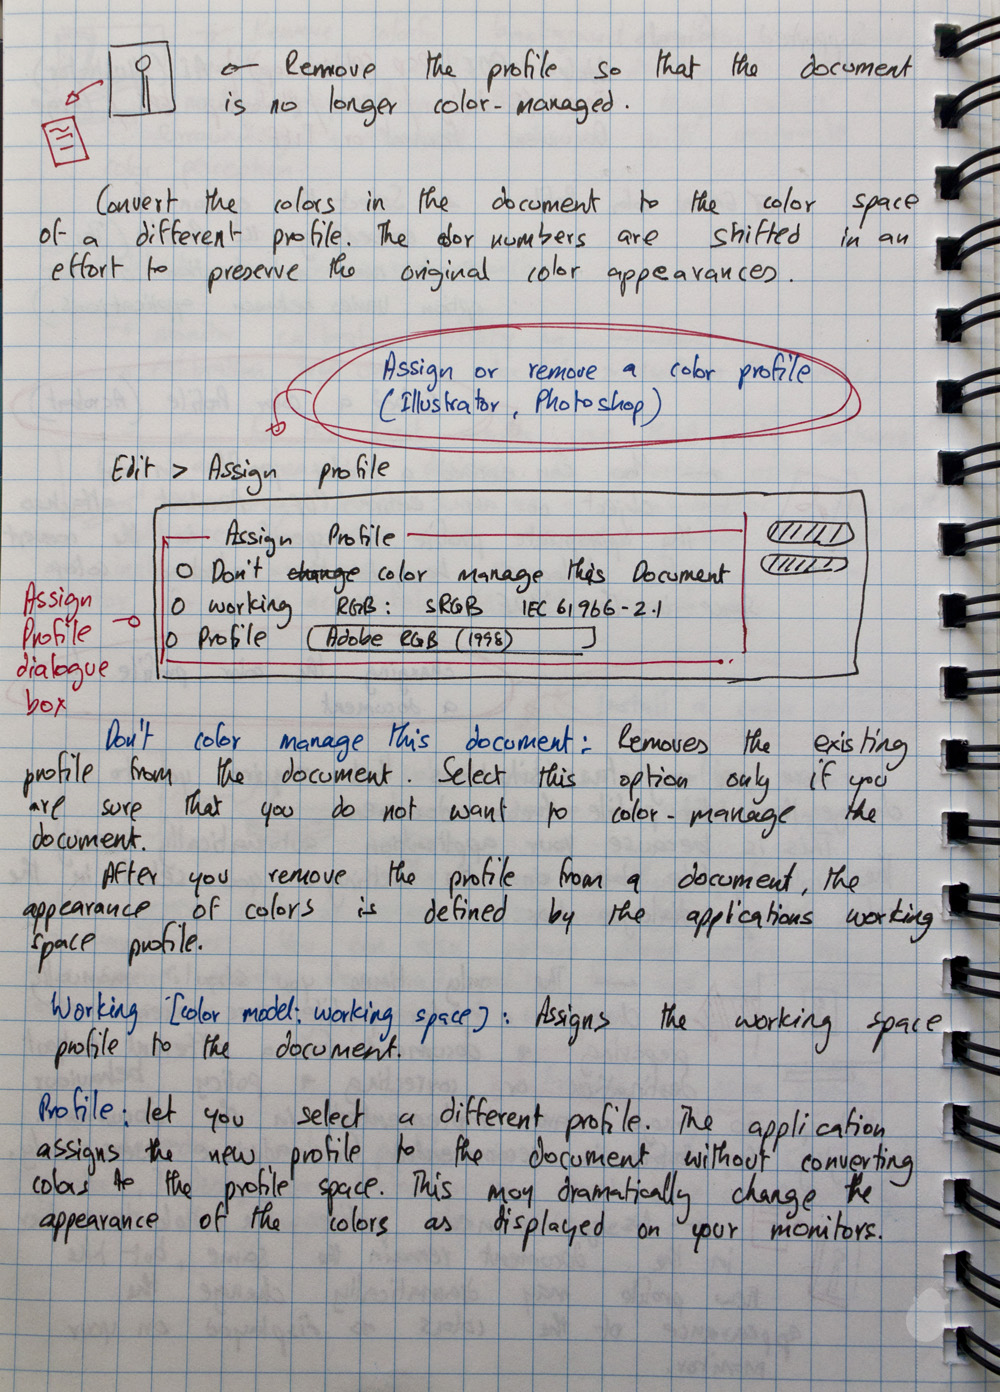 Remove the profile so that the document
is no longer color-managed.
Convert the colors in the document to the color space
of a different profile. The color numbers are shifted in an
effort to preserve the original color appearances.
Assign or remove a color profile
(Illustrator, Photoshop)
Edit > Assign profile
Assign Profile
Don't change color manage this Document
working RGB: sRGB IEC 61966-2.1
Profile Adobe RGB (1998)
Assign
Profile
dialogue
box
Don't color manage this document: Removes the existing
profile from the document. Select this option only if you
are sure that you do not want to color-manage the
document.
After you remove the profile from a document, the
appearance of colors is defined by the applications working
space profile.
Working [color model: working space]: Assigns the working space
profile to the document.
Profile: let you select a different profile. The application
assigns the new profile to the document without converting
colors to the profile space. This may dramatically change the
appearance of the colors as displayed on your monitors.